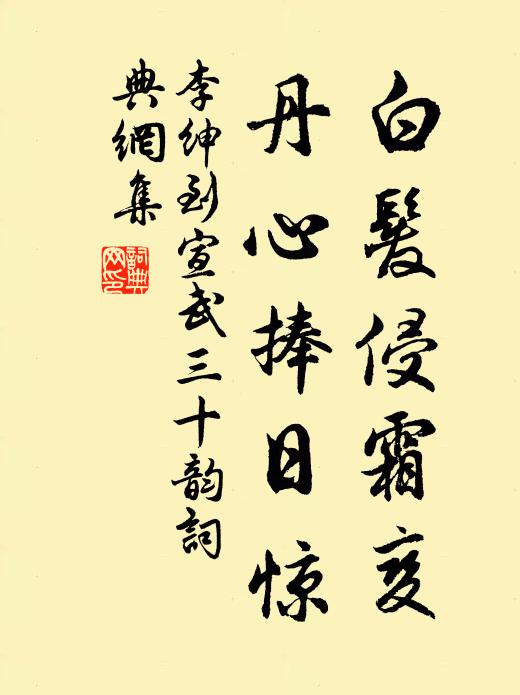 白髮侵霜变
丹心捧日惊
李绅到宣武三十韵詞
典網集
詞典網印